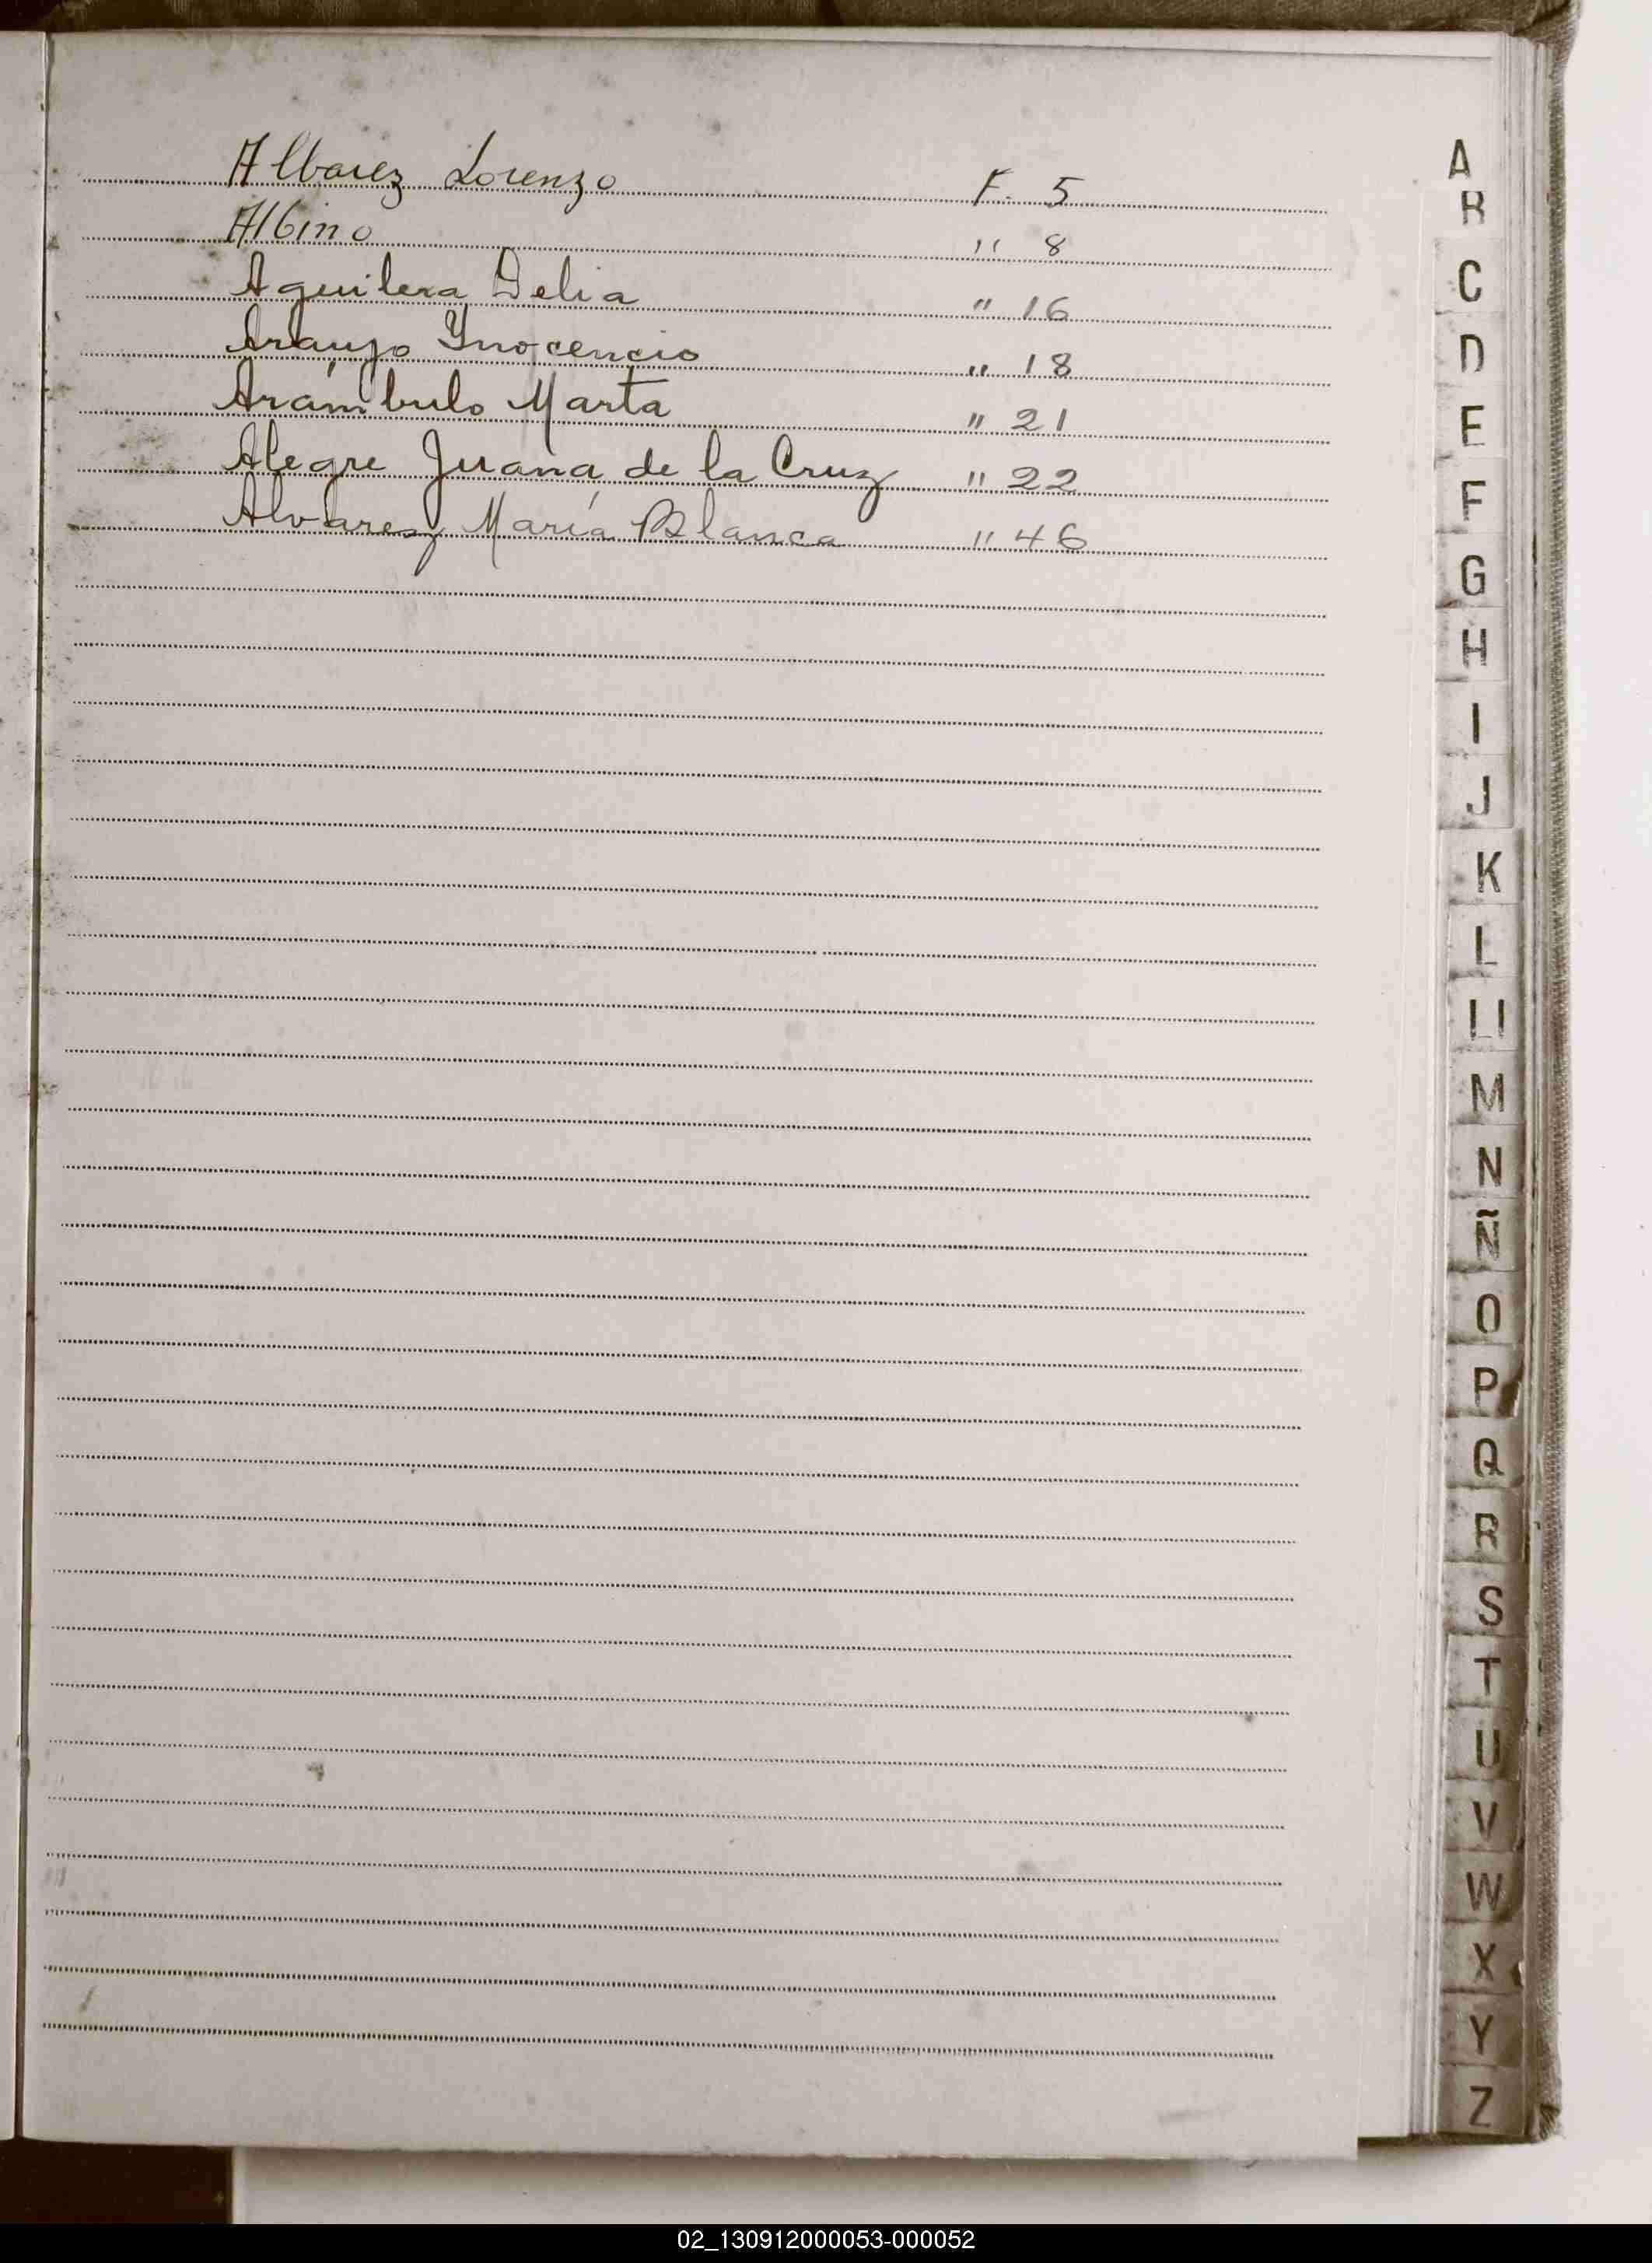 Albarez Lorenzo F. 5
Albino " 8
Aguilera Delia " 16
Araujo Ynocencio " 18
Arámbulo Marta " 21
Alegre Juana de la Cruz " 22
Alvarez María Blanca " 46
A
B
C
D
E
F
G
H
I
J
K
L
Ll
M
N
Ñ
O
P
Q
R
S
T
U
V
W
X
Y
Z
02_130912000053-000052